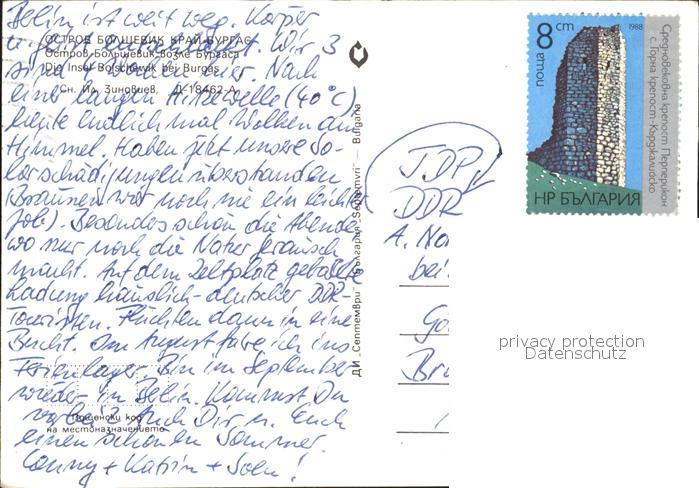 Berlin ist weit weg. Körper
u. Geist
Wir 3
ОСТРОВ БОЛШЕВИК КРАЙ БУРГАС
Остров Большевик возле Бургаса
sind 4 Wochen hier. Nach
Die Insel Bolschewik bei Burgas
Сн. Ил. Зиновиев, Д-18462-А
einer langen Hitzewelle (40°C)
heute endlich mal Wolken am
Himmel. Haben jetzt unsere So-
larschädigungen überstanden
(Bräunen war noch nie ein leichter
Job). Besonders schön die Abende,
wo nur noch die Natur
macht. Auf dem Zeltplatz geballte
Ladung häuslich-deutscher DDR-
Touristen. Flüchten dann in eine
Bucht. Im August fahre ich ins
Ferienlager. Bin im September
wieder in Berlin. Kommst Du
vorbei? Auch Dir u. Euch
Пощенски код
на местоназначението
einen schönen Sommer.
Conny + Katrin + Sven!
ДИ „Септември" — България „Septemvri" — Bulgaria
JDP
DDR
A. No
bei
Go
Bru
поща 8 ст
1988
Средновековна крепост Перперикон
с. Горна крепост-Кърджалийско
НР БЪЛГАРИЯ
privacy protection
Datenschutz